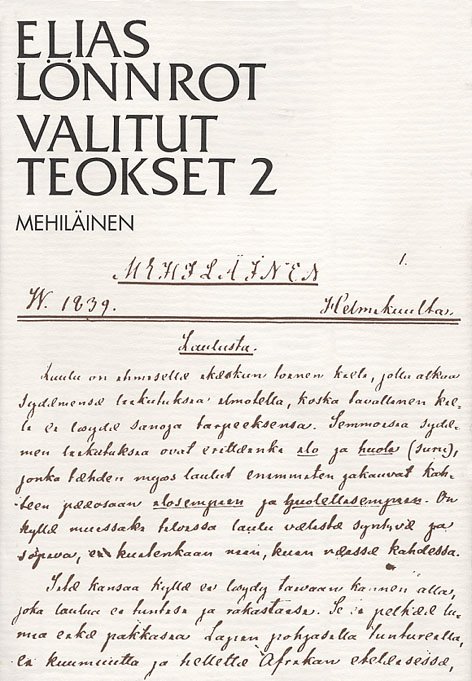 ELIAS
LÖNNROT
VALITUT
TEOKSET 2
MEHILÄINEN
1.
MEHILÄINEN
W. 1839. Helmikuulta.
Laulusta.
Laulu on ihmisellä ikäskun toinen kieli, jolla alkaa
sydämensä liikutuksia ilmotella, koska tavallinen kie-
li ei löydä sanoja tarpeeksensa. Semmosia sydä-
men liikutuksia ovat erittäinki ilo ja huoli (suru),
jonka tähden myös laulut enimmiten jakauvat kah-
teen pääosaan ilosempiin ja huolellisempiin. On
kyllä muissaki tiloissa laulu välistä syntyvä ja
sopiva, ei kuitenkaan niin, kuin näissä kahdessa.
Sitä kansaa kyllä ei löydy taivaan kannen alla,
joka laulua ei tuntisi ja rakastaisi. Se ei pelkää lu-
mia eikä pakkasia Lapin pohjasilla tuntureilla,
ei kuumuutta ja hellettä Afrikan eteläisessä,